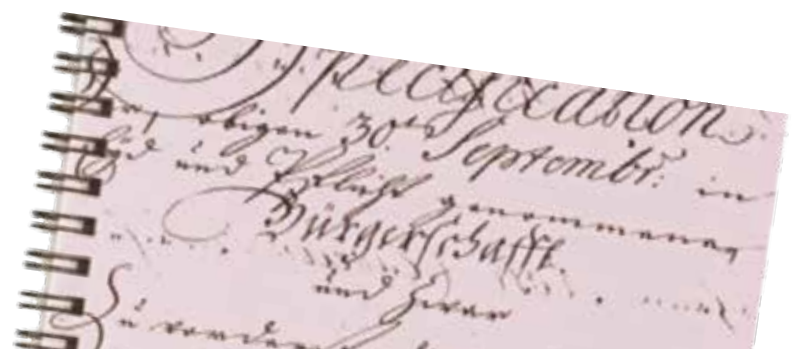 Specification
Der, obigen 30ten Septembr: in
Eyd und Pflicht genommenen
Bürgerschafft.
und zwar
Zu vorder